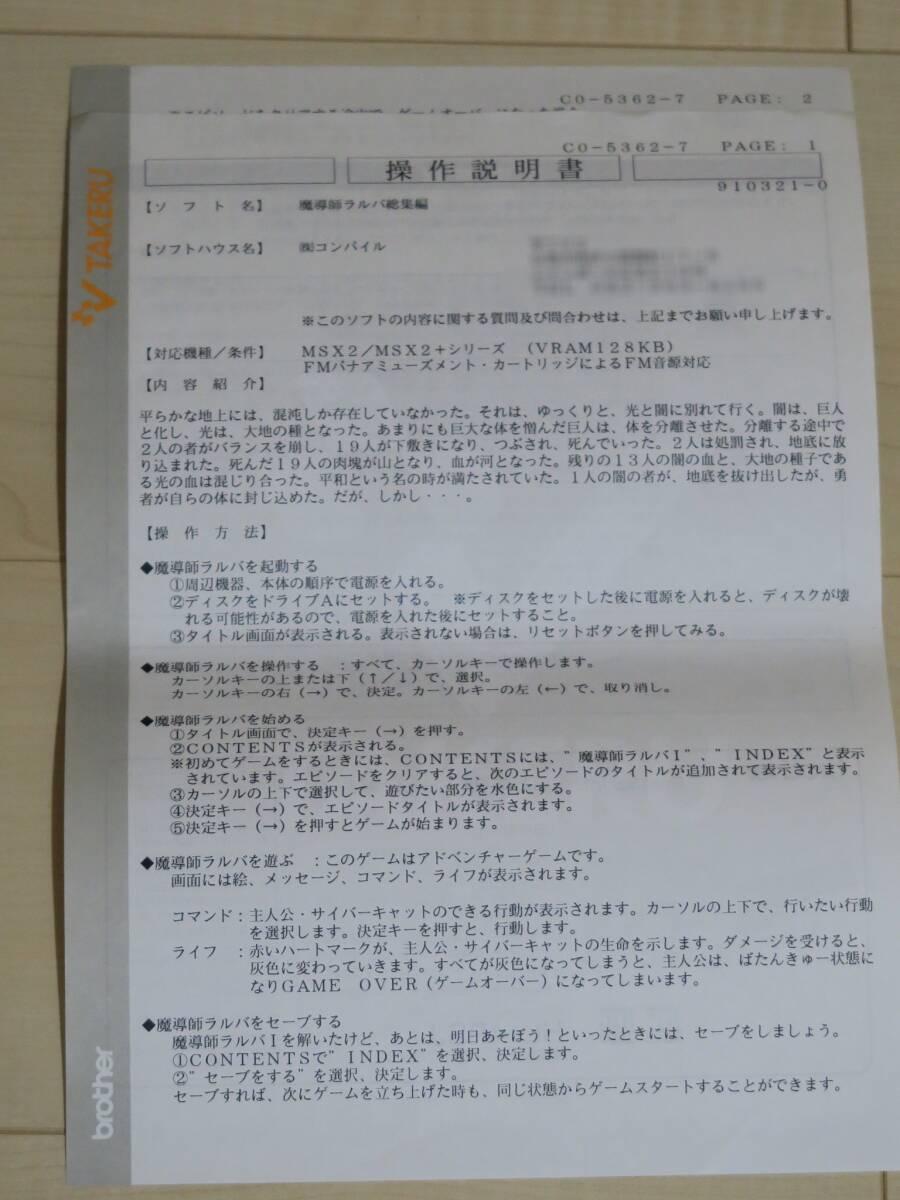 CO-5362-7 PAGE: 2
CO-5362-7 PAGE: 1
操作説明書
910321-0
【ソフト名】 魔導師ラルバ総集編
【ソフトハウス名】 ㈱コンパイル
※このソフトの内容に関する質問及び問合わせは、上記までお願い申し上げます。
【対応機種／条件】 MSX2／MSX2+シリーズ （VRAM128KB）
FMパナアミューズメント・カートリッジによるFM音源対応
【内容紹介】
平らかな地上には、混沌しか存在していなかった。それは、ゆっくりと、光と闇に別れて行く。闇は、巨人
と化し、光は、大地の種となった。あまりにも巨大な体を憎んだ巨人は、体を分離させた。分離する途中で
2人の者がバランスを崩し、19人が下敷きになり、つぶされ、死んでいった。2人は処罰され、地底に放
り込まれた。死んだ19人の肉塊が山となり、血が河となった。残りの13人の闇の血と、大地の種子であ
る光の血は混じり合った。平和という名の時が満たされていた。1人の闇の者が、地底を抜け出したが、勇
者が自らの体に封じ込めた。だが、しかし・・・。
【操作方法】
◆魔導師ラルバを起動する
①周辺機器、本体の順序で電源を入れる。
②ディスクをドライブAにセットする。 ※ディスクをセットした後に電源を入れると、ディスクが壊
れる可能性があるので、電源を入れた後にセットすること。
③タイトル画面が表示される。表示されない場合は、リセットボタンを押してみる。
◆魔導師ラルバを操作する ：すべて、カーソルキーで操作します。
カーソルキーの上または下（↑／↓）で、選択。
カーソルキーの右（→）で、決定。カーソルキーの左（←）で、取り消し。
◆魔導師ラルバを始める
①タイトル画面で、決定キー（→）を押す。
②CONTENTSが表示される。
※初めてゲームをするときには、CONTENTSには、”魔導師ラルバI”、”INDEX”と表示
されています。エピソードをクリアすると、次のエピソードのタイトルが追加されて表示されます。
③カーソルの上下で選択して、遊びたい部分を水色にする。
④決定キー（→）で、エピソードタイトルが表示されます。
⑤決定キー（→）を押すとゲームが始まります。
◆魔導師ラルバを遊ぶ ：このゲームはアドベンチャーゲームです。
画面には絵、メッセージ、コマンド、ライフが表示されます。
コマンド：主人公・サイバーキャットのできる行動が表示されます。カーソルの上下で、行いたい行動
を選択します。決定キーを押すと、行動します。
ライフ ：赤いハートマークが、主人公・サイバーキャットの生命を示します。ダメージを受けると、
灰色に変わっていきます。すべてが灰色になってしまうと、主人公は、ばたんきゅー状態に
なりGAME OVER（ゲームオーバー）になってしまいます。
◆魔導師ラルバをセーブする
魔導師ラルバIを解いたけど、あとは、明日あそぼう！といったときには、セーブをしましょう。
①CONTENTSで”INDEX”を選択、決定します。
②”セーブをする”を選択、決定します。
セーブすれば、次にゲームを立ち上げた時も、同じ状態からゲームスタートすることができます。
TAKERU
brother